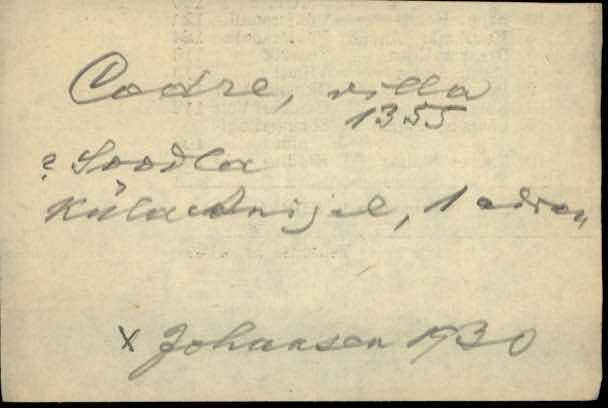 Codre, villa
1355
? Soodla
küla Anijal, 1 adra„
x Johansen 1930